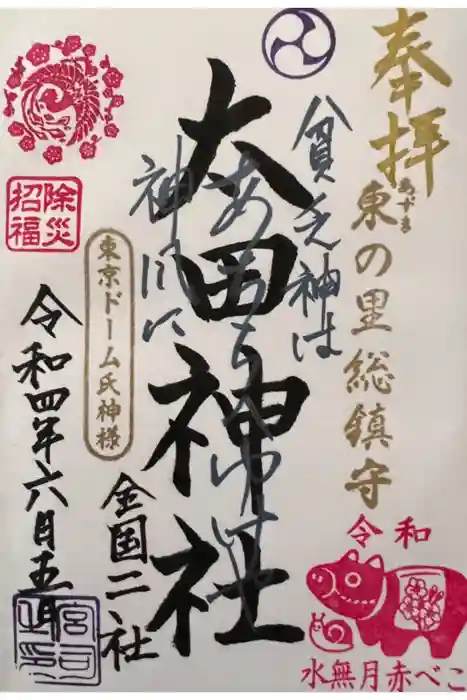 奉拝
東の里総鎮守
あずま
貧乏神は
太田神社
神風に
全国二社
東京ドーム氏神様
除災
招福
令和四年六月五日
宮司
令和
水無月赤べこ